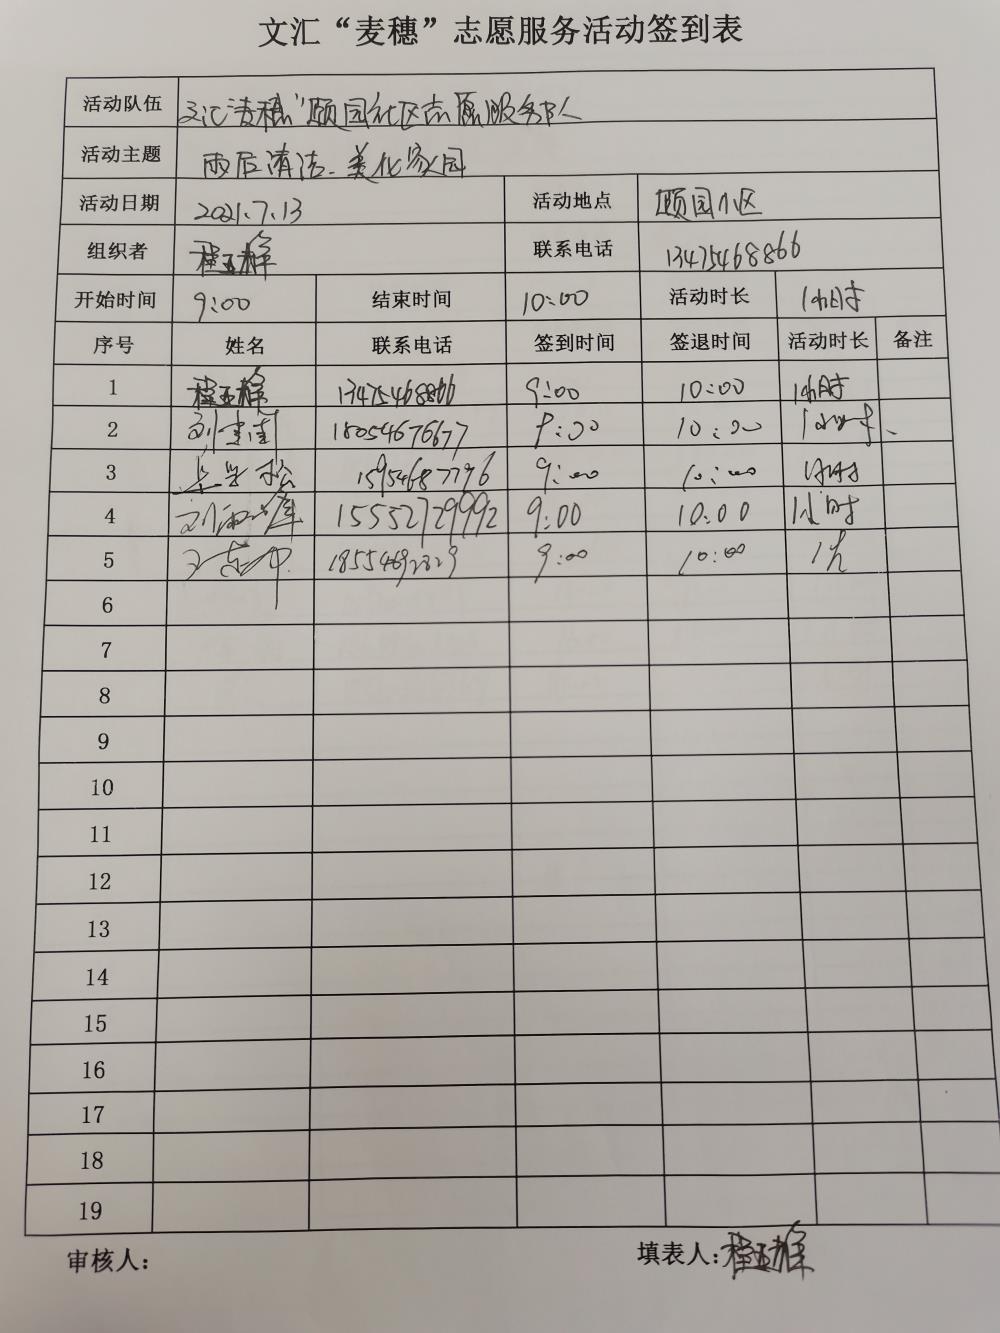 文汇“麦穗”志愿服务活动签到表
活动队伍 文汇“麦穗”颐园社区志愿服务队
活动主题 雨后清洁、美化家园
活动日期 2021.7.13 活动地点 颐园小区
组织者 联系电话 13475468866
开始时间 9:00 结束时间 10:00 活动时长 1小时
序号 姓名 联系电话 签到时间 签退时间 活动时长 备注
1 13475468866 9:00 10:00 1小时
2 18054676677 9:00 10:00 1小时
3 15954687796 9:00 10:00 1小时
4 15552729992 9:00 10:00 1小时
5 9:00 10:00
6
7
8
9
10
11
12
13
14
15
16
17
18
19
审核人: 填表人: